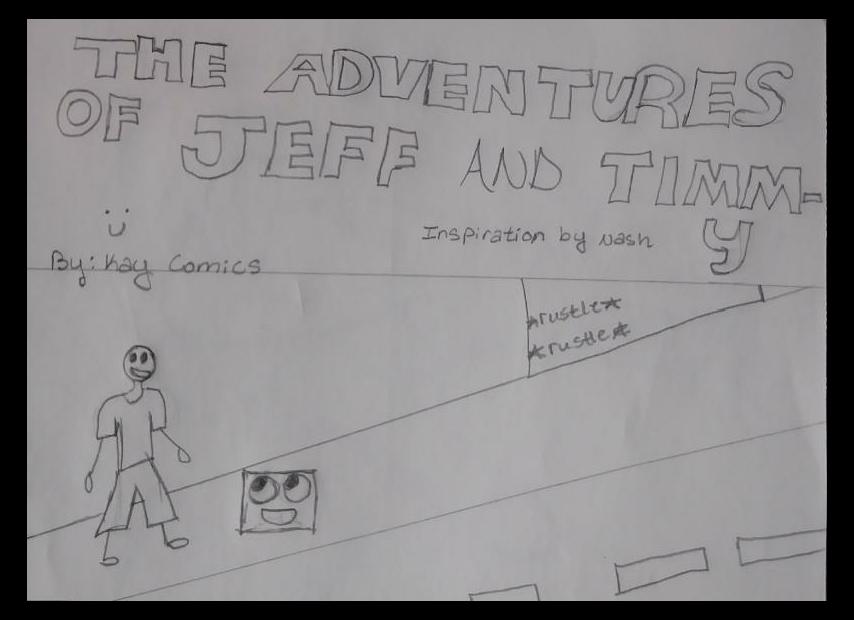 THE ADVENTURES
OF JEFF AND TIMM-
y
Inspiration by Nash
By: Kay Comics
*rustle*
*rustle*